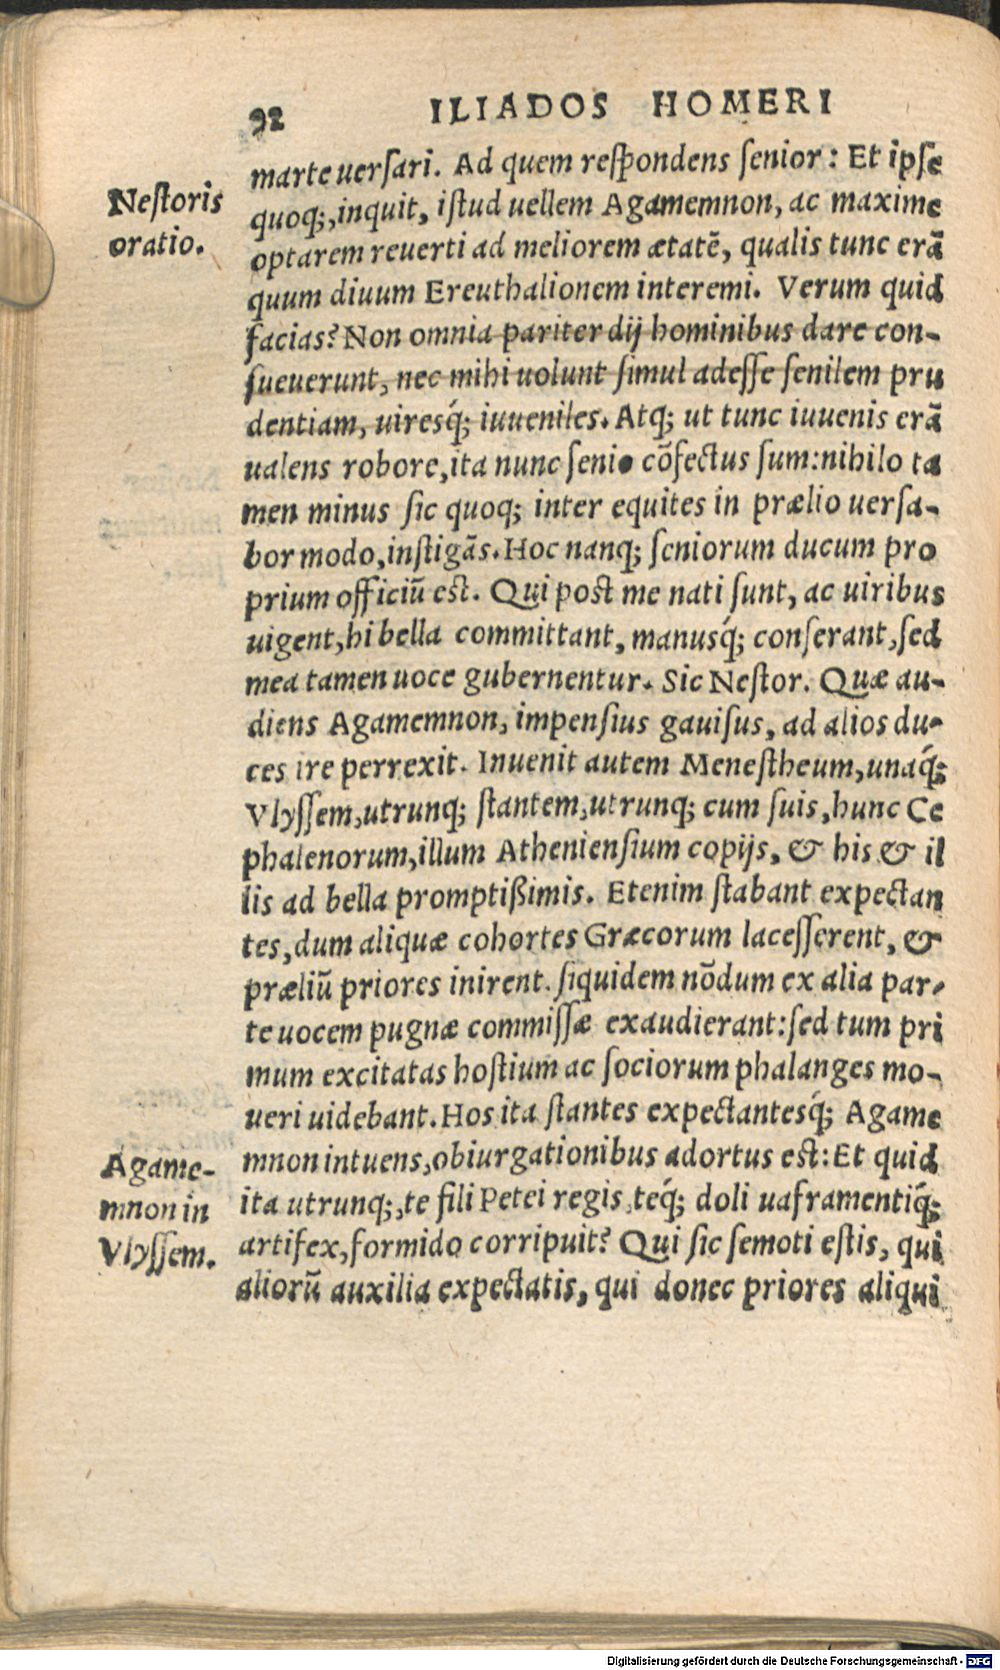 92 ILIADOS HOMERI
marte uersari. Ad quem respondens senior: Et ipse
Nestoris
quoq;, inquit, istud uellem Agamemnon, ac maxime
oratio.
optarem reuerti ad meliorem ætatē, qualis tunc erā
quum diuum Ereuthalionem interemi. Verum quid
facias? Non omnia pariter dij hominibus dare con-
sueuerunt, nec mihi uolunt simul adesse senilem pru
dentiam, uiresq́; iuueniles. Atq; ut tunc iuuenis erā
ualens robore, ita nunc senio cōfectus sum: nihilo ta
men minus sic quoq; inter equites in prælio uersa-
bor modo, instigās. Hoc nanq; seniorum ducum pro
prium officiū est. Qui post me nati sunt, ac uiribus
uigent, hi bella committant, manusq́; conserant, sed
mea tamen uoce gubernentur. Sic Nestor. Quæ au-
diens Agamemnon, impensius gauisus, ad alios du-
ces ire perrexit. Inuenit autem Menestheum, unaq́;
Vlyssem, utrunq; stantem, utrunq; cum suis, hunc Ce
phalenorum, illum Atheniensium copijs, & his & il
lis ad bella promptißimis. Etenim stabant expectan
tes, dum aliquæ cohortes Græcorum lacesserent, &
præliū priores inirent. siquidem nōdum ex alia par-
te uocem pugnæ commissæ exaudierant: sed tum pri
mum excitatas hostium ac sociorum phalanges mo-
ueri uidebant. Hos ita stantes expectantesq́; Agame
Agame-
mnon intuens, obiurgationibus adortus est: Et quid
mnon in
ita utrunq;, te fili Petei regis, teq́; doli uaframentiq́;
Vlyssem.
artifex, formido corripuit? Qui sic semoti estis, qui
aliorū auxilia expectatis, qui donec priores aliqui
Digitalisierung gefördert durch die Deutsche Forschungsgemeinschaft - DFG